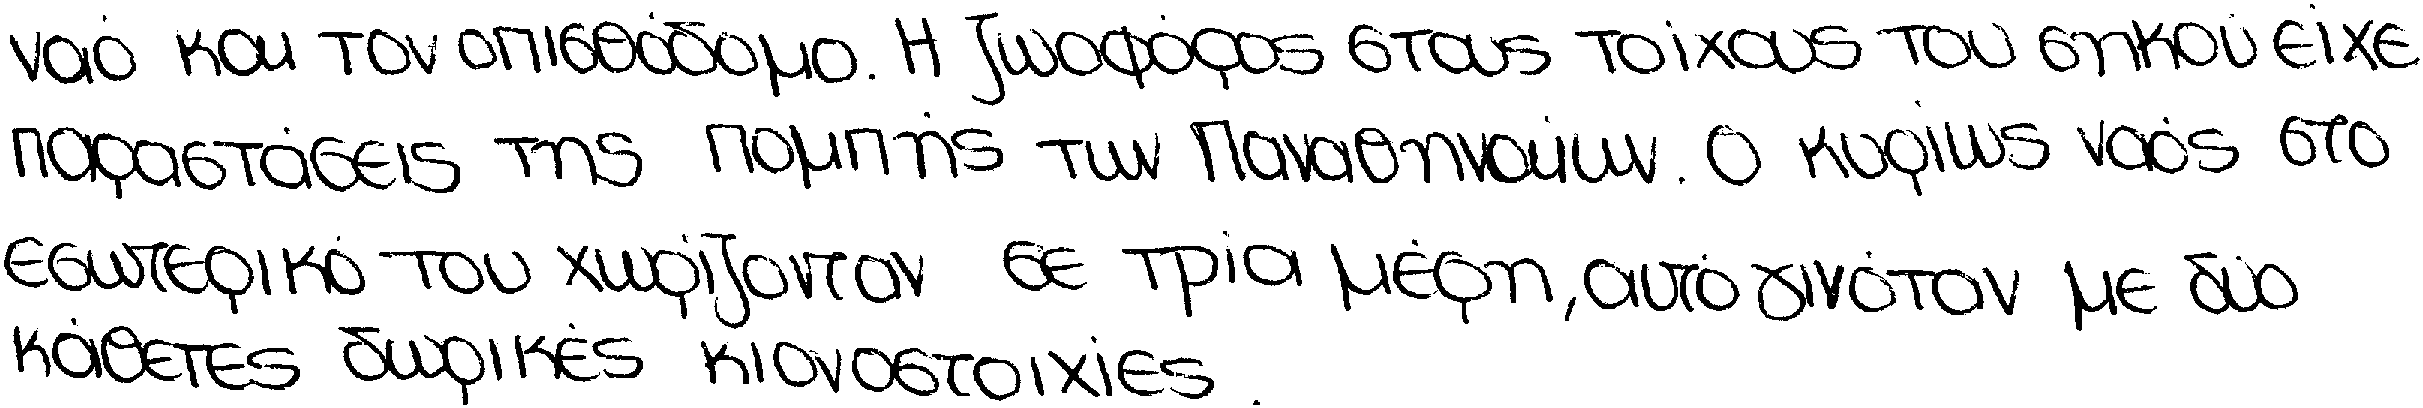 ναό και τον οπισθόδομο. Η ζωοφόρος στους τοίχους του σηκού είχε
παραστάσεις της πομπής των Παναθηναίων. Ο κυρίως ναός στο
εσωτερικό του χωρίζονταν σε τρία μέρη, αυτό γινόταν με δύο
κάθετες δωρικές κιονοστοιχίες.